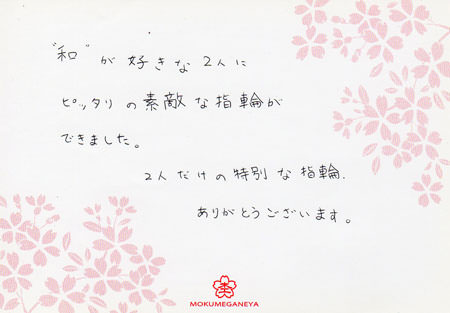 "和"が好きな2人に
ピッタリの素敵な指輪が
できました。
2人だけの特別な指輪.
ありがとうございます。
MOKUMEGANEYA